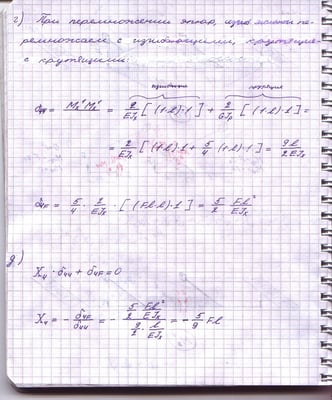 г) При перемножении эпюр, изгиб. моменты пе-
ремножаем с изгибающими, крутящие -
с крутящими:
изгибание кручение
δ₄₄ = M₄'M₄' = 2/EJₓ [(1·l)·1] + 2/GJρ [(1·l)·1] =
= 2/EJₓ [(1·l)·1 + 5/4 (1·l)·1] = 9l/2EJₓ
δ₄F = 5/4 · 2/EJₓ · [(Fl·l)·1] = 5/2 Fl²/EJₓ
д)
X₄ · δ₄₄ + δ₄F = 0
X₄ = - δ₄F/δ₄₄ = - (5/2 Fl²/EJₓ)/(9/2 · l/EJₓ) = - 5/9 Fl